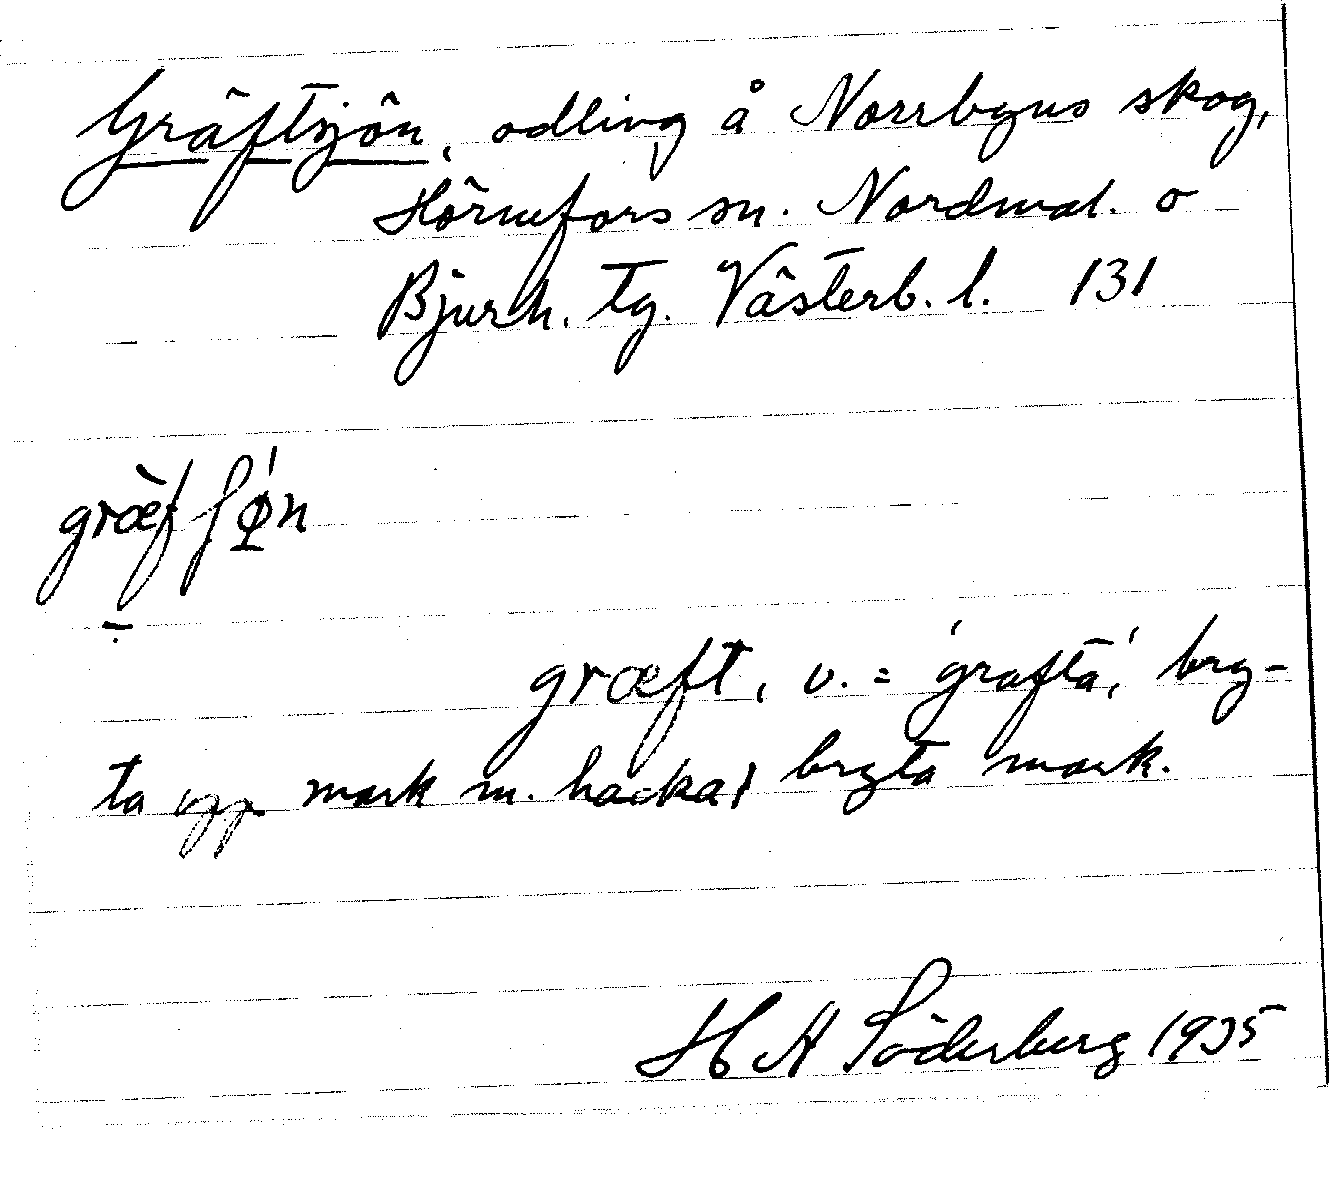 Gräftsjön, odling å Norrbyns skog,
Hörnefors sn. Nordmal. o
Bjurh. tg. Västerb. l. 131
græ̀fʃø̍n
græft, v. = 'gräfta', bry-
ta upp mark m. hacka, bryta mark.
H H Söderberg 1935